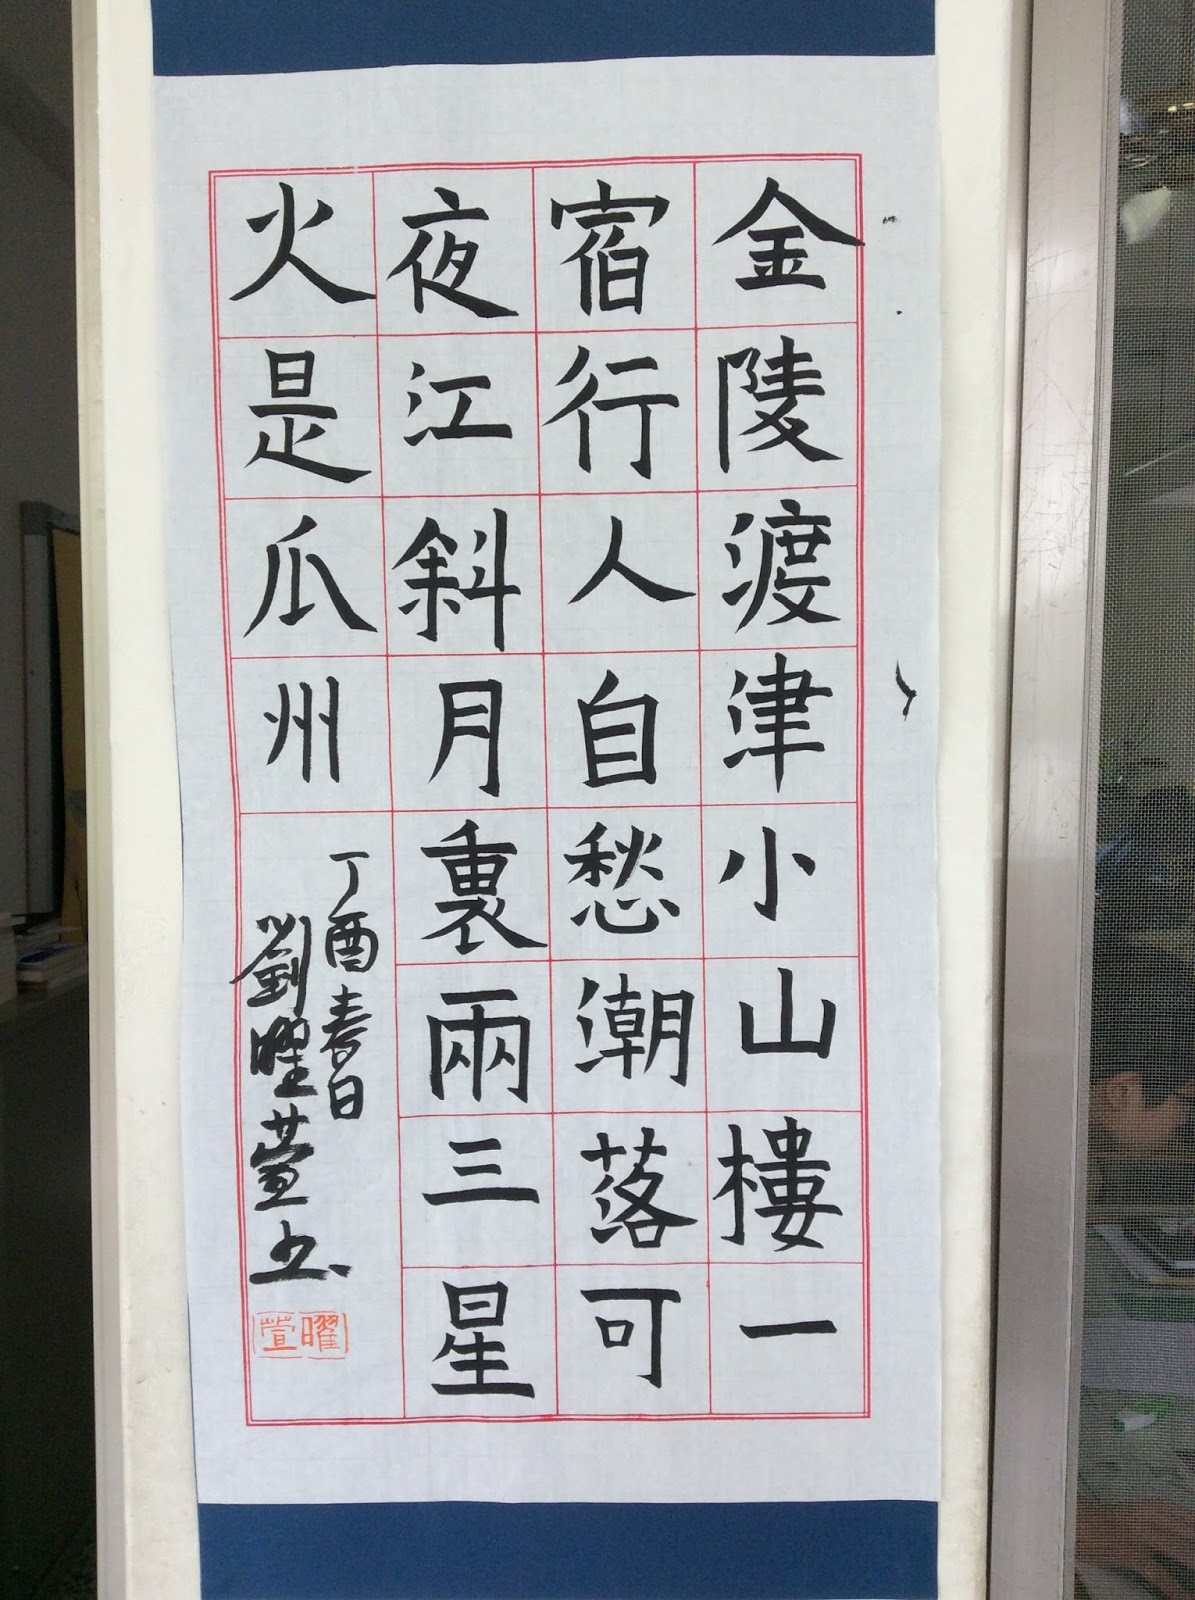 金陵渡津小山樓一
宿行人自愁潮落可
夜江斜月裏兩三星
火是瓜州
丁酉春日
劉曜萱書
曜萱